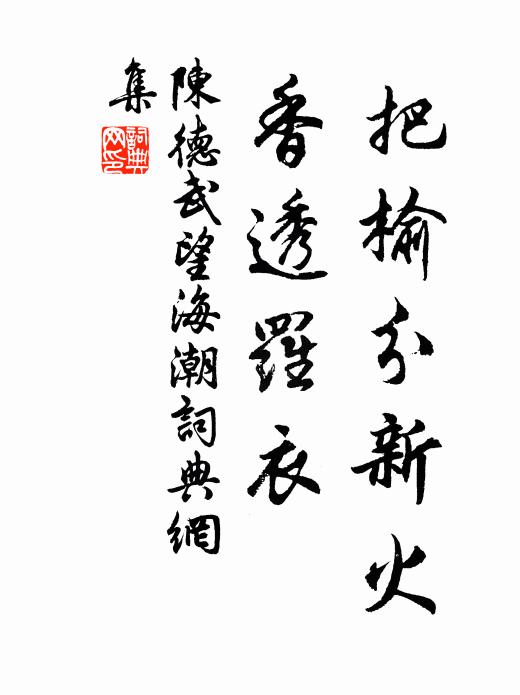 把榆分新火
香透羅衣
陳德武望海潮詞典網
集
詞典
网印